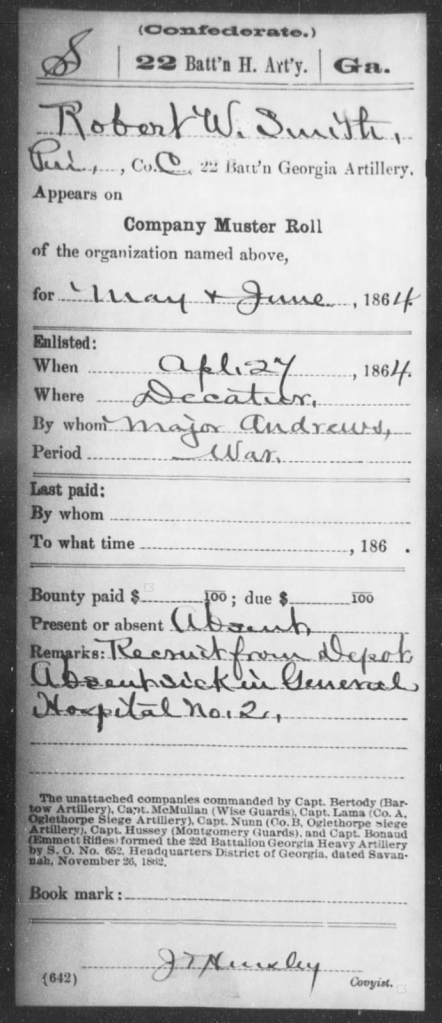 (Confederate.)
S | 22 Batt'n H. Art'y. | Ga.
Robert W. Smith,
Pri., , Co. C, 22 Batt'n Georgia Artillery.
Appears on
Company Muster Roll
of the organization named above,
for May & June , 1864.
Enlisted:
When Apl. 27 , 1864.
Where Decatur,
By whom Major Andrews,
Period War.
Last paid:
By whom
To what time , 186 .
Bounty paid $ 100 ; due $ 100
Present or absent Absent
Remarks: Recruit from Depot
Absent sick in General
Hospital No. 2,
The unattached companies commanded by Capt. Bertody (Bar-
tow Artillery), Capt. McMullan (Wise Guards), Capt. Lama (Co. A,
Oglethorpe Siege Artillery), Capt. Nunn (Co. B, Oglethorpe Siege
Artillery), Capt. Hussey (Montgomery Guards), and Capt. Bonaud
(Emmett Rifles) formed the 22d Battalion Georgia Heavy Artillery
by S. O. No. 652, Headquarters District of Georgia, dated Savan-
nah, November 26, 1862.
Book mark:
(642)
Copyist.